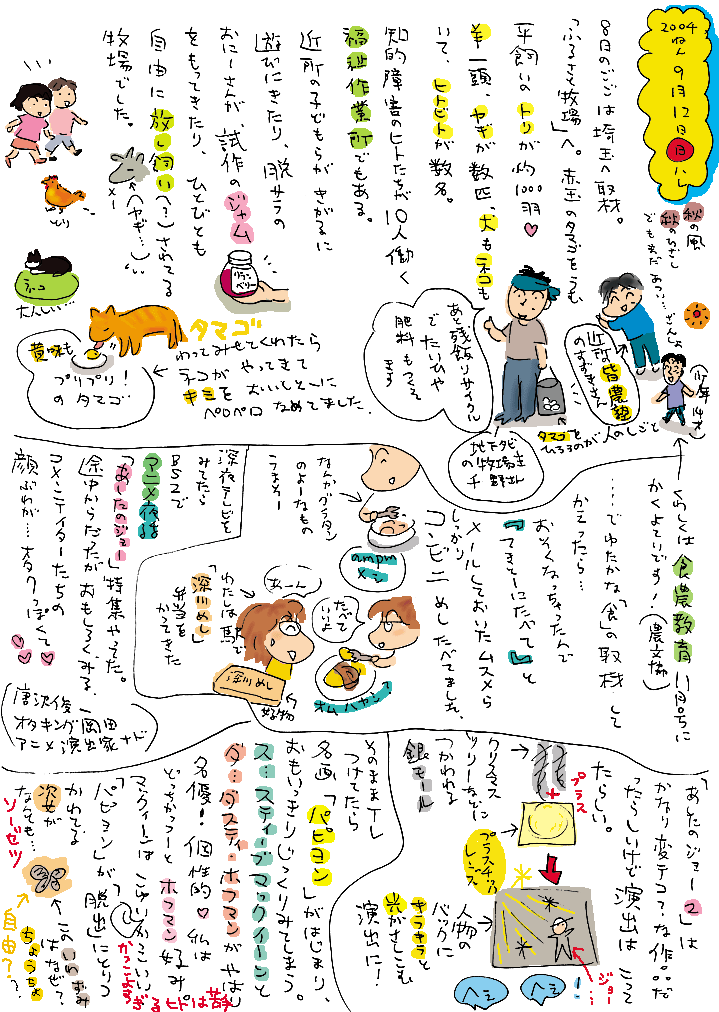 2004
ねん
9月12日
日
ハレ
秋の風
秋のひざし
でもまだあつ…ざんしょ
8日のごごは埼玉へ取材。
「ふるさと牧場」へ。赤玉のタマゴをうむ
平飼いのトリが約1000羽♡
羊一頭、ヤギが数匹、犬もネコも
いて、ヒトビトが数名。
知的障害のヒトたちが10人働く
福祉作業所でもある。
近所の子どもらがきがるに
遊びにきたり、脱サラの
おにーさんが、試作のジャム
をもってきたり、ひとびとも
自由に放し飼い(?)されてる
牧場でした。
(ヤギ…)
メー
とり
ネコ
大人しい
ラズベリー
タマゴ
わってみせてくれたら
ネコがやってきて
キミをおいしそーに
ペロペロなめてました。
黄味も
プリプリ!
のタマゴ
あと残飯リサイクル
でたいひや
肥料もつくって
ます
近所の皆農塾
のすずきさん
(少年14才)
タマゴを
ひろうのが人のしごと
地下タビ
の牧場主
千野さん
くわしくは食農教育11月号に
かくよていです!(農文協)
……でゆたかな「食」の取材して
かえったら…
おそくなっちゃったんで
「てきとーにたべて」と
メールしておいたムスメら
しっかり
コンビニめしたべてました。
なんかグラタン
のよーなもの
うまそー
ampm
メシ
あーん
たべて
いいよ
オムハヤシ
わたしは駅で
「深川めし」
弁当を
かってきた
深川めし
好物
深夜テレビを
みてたら
BS2で
アニメ夜話
「あしたのジョー」特集やってた。
途中からだったがおもしろくみる。
コメンテイターたちの
顔ぶれが…オタクっぽくて
(唐沢俊一
オタキング岡田
アニメ演出家ナド)
「あしたのジョー2」は
かなり変テコ?な作品だ
ったらしいけど演出はこって
たらしい。
クリスマス
ツリーなどに
つかわれる
銀モール
プラス
プラスチック
レンズ
人物の
バックに
キラキラと
光がさしこむ
演出に!
ジョー…
ヘェ
ヘェ
!
そのままTL
つけてたら
名画「パピヨン」がはじまり、
おもいっきりじっくりみてしまう。
ス…スティーブマックイーンと
ダ…ダスティホフマンがやはし
名優!個性的♡私は
どっちかっつーとホフマン好み。
マックィーンはこれよりかっこいい
かっこよすぎるヒトは苦手
「パピヨン」が「脱出」にとりつ
かれてる
このいれずみ
はなぜ?
ちょうちょ?
次女が
なんでも…
ソーゼツ
自由?